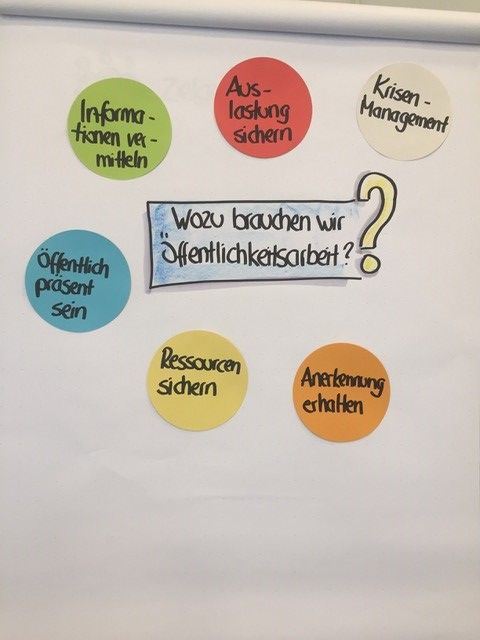 Informa-
tionen ver-
mitteln
Aus-
lastung
sichern
Krisen-
Management
Wozu brauchen wir
Öffentlichkeitsarbeit?
?
Öffentlich
präsent
sein
Ressourcen
sichern
Anerkennung
erhalten